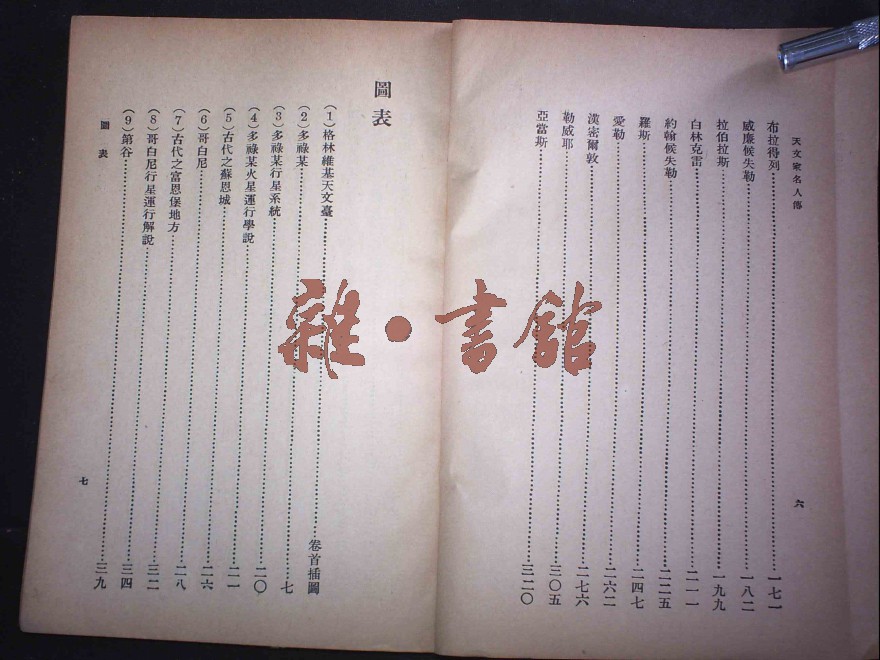 天文家名人傳
布拉得列……一七一
威廉候失勒……一八二
拉伯拉斯……一九九
白林克雷……二一一
約翰候失勒……二二五
羅斯……二四七
愛勒……二六二
漢密爾敦……二七六
勒威耶……三〇五
亞當斯……三二〇
六
圖表
(1)格林維基天文臺……卷首插圖
(2)多祿某……七
(3)多祿某行星系統……二〇
(4)多祿某火星運行學說……二一
(5)古代之蘇恩城……二六
(6)哥白尼……二八
(7)古代之富恩堡地方……三二
(8)哥白尼行星運行解說……三四
(9)第谷……三九
圖表
七
雜·書館